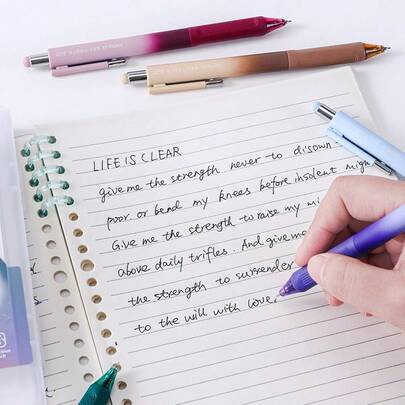 LIFE IS CLEAR
give me the strength never to disown
poor or bend my knees before insolent migh
Give me the strength to raise my mi
above daily trifles. And give me
the strength to surrender
to the will with love.